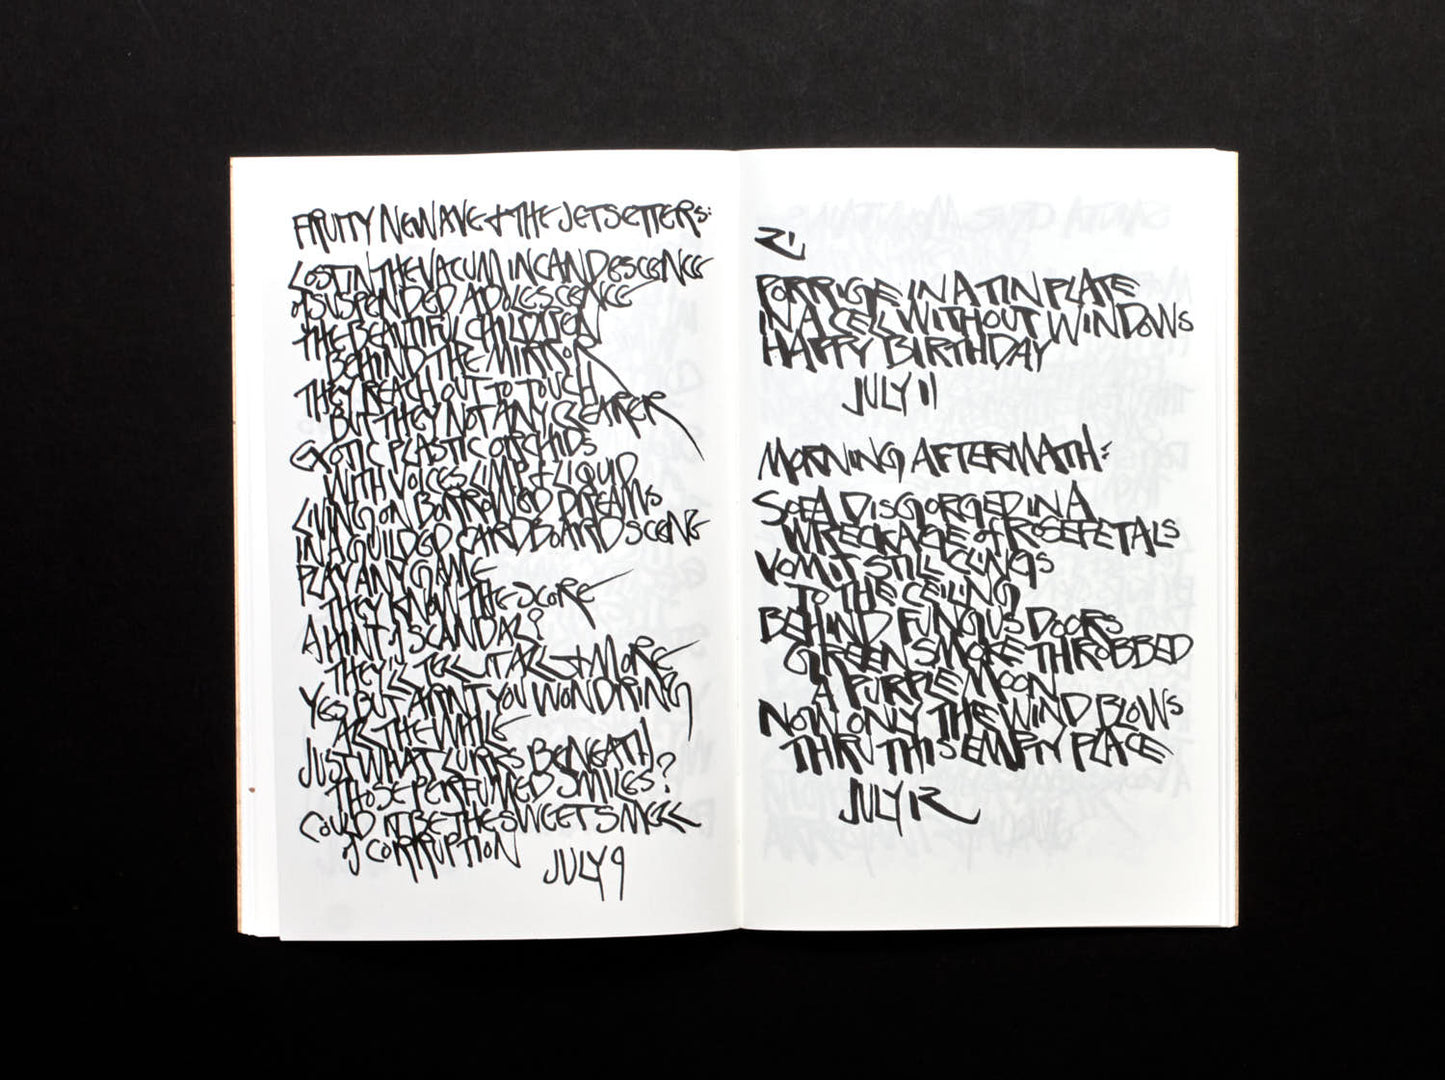 FRUITY NEWAVE & THE JETSETTERS:
LOST IN THE VACUUM INCANDESCENCE
of SUSPENDED ADOLESCENCE
THE BEAUTIFUL CHILDREN
BEHIND THE MIRROR
THEY REACH OUT TO TOUCH
BUT THEY NOT ANY CLEARER
EXOTIC PLASTIC ORCHIDS
WITH VOICES LIMP & LIQUID
LIVING ON BORROWED DREAMS
IN A GUILDED CARDBOARD SCENE
PLAY ANY GAME
THEY KNOW THE SCORE
A HINT of SCANDAL?
THEY'LL TELL IT ALL & MORE
YES BUT ARNT YOU WONDRING
ALL THE WHILE
JUST WHAT LURKS BENEATH
THOSE PERFUMED SMILES?
COULD IT BE THE SWEET SMELL
of CORRUPTION
JULY 9
PORRIGE IN A TIN PLATE
IN A CELL WITHOUT WINDOWS
HAPPY BIRTHDAY
JULY 11
MORNING AFTERMATH:
SOFA DISGORGED IN A
WRECKAGE of ROSEPETALS
VOMIT STILL CLINGS
TO THE CEILING
BEHIND FUNGUS DOORS
GREEN SMOKE THROBBED
A PURPLE MOON
NOW ONLY THE WIND BLOWS
THRU THIS EMPTY PLACE
JULY 12